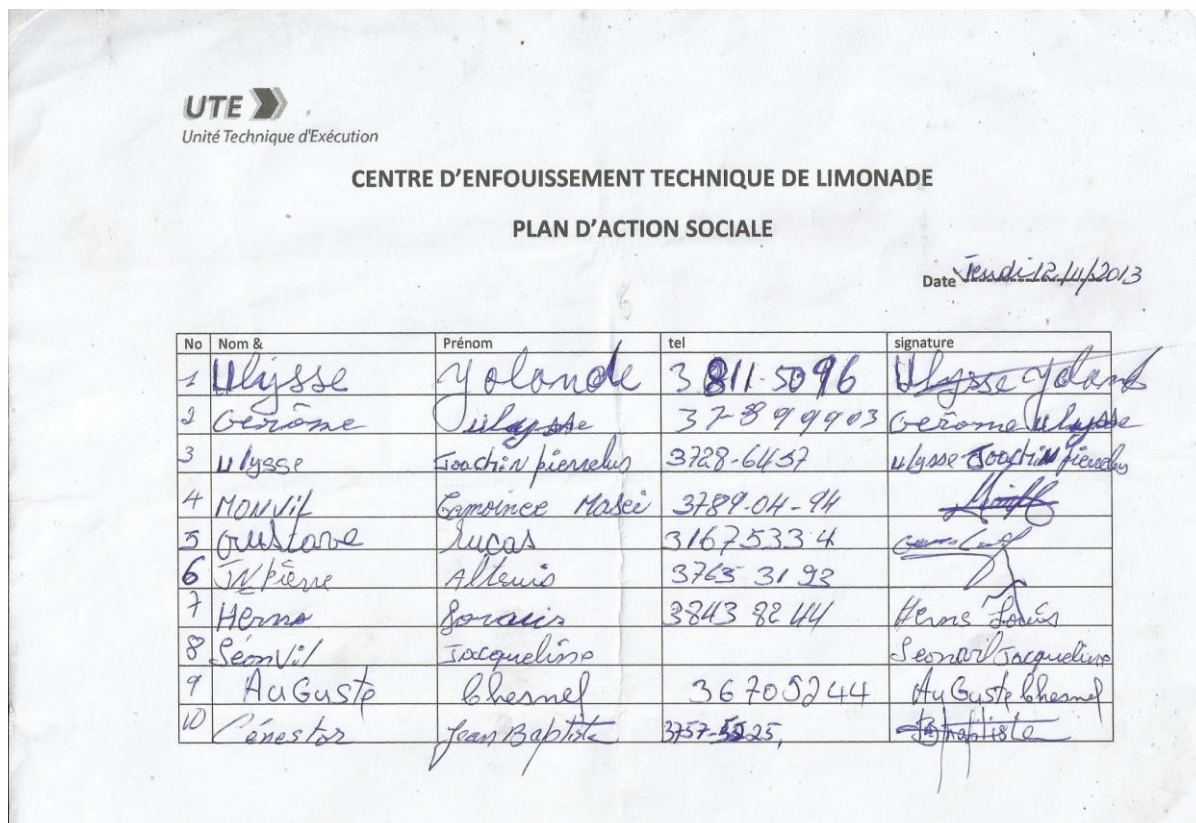 UTE
Unité Technique d'Exécution
CENTRE D'ENFOUISSEMENT TECHNIQUE DE LIMONADE
PLAN D'ACTION SOCIALE
Date Jeudi 12/11/2013
No Nom & Prénom tel signature
1 Ulysse Yolande 3811-5096 Ulysse Yolande
2 Gérôme Ulysse 37899903 Gerôme Ulysse
3 Ulysse Joachin pierrelus 3728-6457 Ulysse Joachin pierrelus
4 MONVil Masei 3789-04-94
5 Gustave Lucas 31675334
6 JN pierre Altenis 3763 3193
7 Herns 3843 82 44 Herns Louis
8 Séonvil Jacqueline Seonvil Jacqueline
9 AuGuste Chesnel 36705244 AuGuste Chesnel
10 Cénestor Jean Baptiste 3757-5525, Baptiste